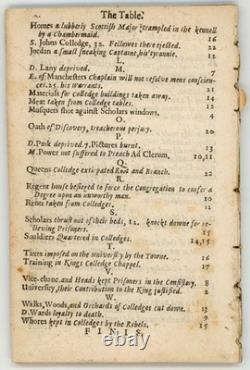 The Table.
Homes a lubberly Scottish Major trampled in the kennell
by a Chambermaid. 16
S. Johns Colledge, 12. Fellowes there ejected. 22
Jordan a small sneaking Captaine, his tyrannie. 13
L.
D. Lany deprived. 20
M.
E. of Manchesters Chaplain will not resolve mens conscien-
ces. 25. his warrants. 21
Materials for colledge buildings taken away. 12
Meat taken from Colledge tables. 16
Musquets shot against Scholars windows. 4
O.
Oath of Discovery, treacherous perjury. 18
P.
D. Pask deprived. 7. Pictures burnt. 20
M. Power not suffered to Preach Ad Clerum, 10,11
Q.
Queens Colledge extirpated Root and Branch. 22
R.
Regent house besieged to force the Congregation to confer a
Degree upon an unworthy man. 10
Rents taken from Colledges. 17
S.
Scholars thrust out of their beds, 12. knockt downe for re-
lieving Prisoners. 15
Souldiers Quartered in Colledges. 14,15
T.
Taxes imposed on the University by the Towne. 16
Training in Kings Colledge Chappel. 17
V.
Vice-chanc. and Heads kept Prisoners in the Consistory. 8
University, their Contribution to the King justified. 2
W.
Walks, Woods, and Orchards of Colledges cut downe. 13
D. Wards loyalty to death. 9
Whores kept in Colledges by the Rebels. 15
FINIS.